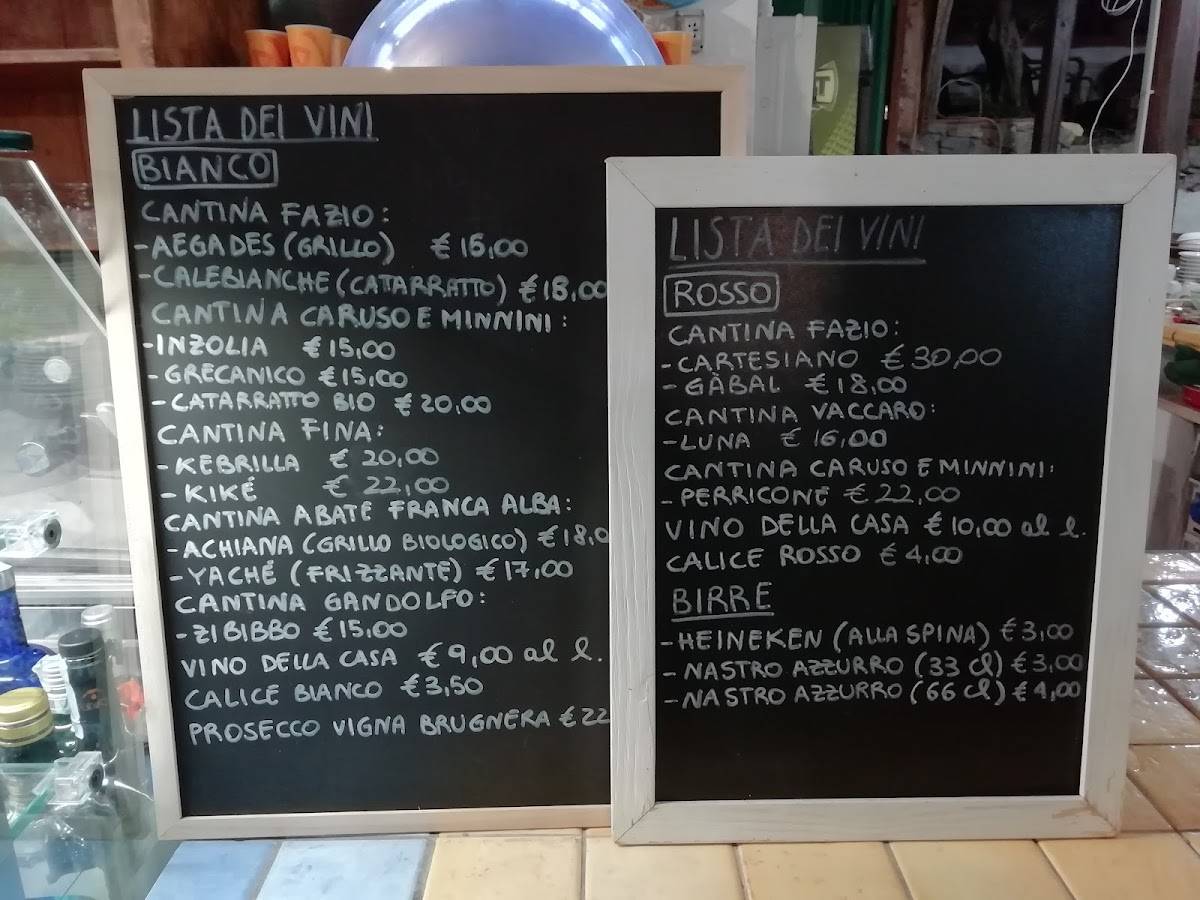 LISTA DEI VINI
BIANCO
CANTINA FAZIO:
- AEGADES (GRILLO) € 16,00
- CALEBIANCHE (CATARRATTO) € 18,00
CANTINA CARUSO E MINNINI:
- INZOLIA € 15,00
- GRECANICO € 15,00
- CATARRATTO BIO € 20,00
CANTINA FINA:
- KEBRILLA € 20,00
- KIKÉ € 22,00
CANTINA ABATE FRANCA ALBA:
- ACHIANA (GRILLO BIOLOGICO) € 18,0
- YACHÉ (FRIZZANTE) € 17,00
CANTINA GANDOLFO:
- ZIBIBBO € 15,00
VINO DELLA CASA € 9,00 al l.
CALICE BIANCO € 3,50
PROSECCO VIGNA BRUGNERA € 22
LISTA DEI VINI
ROSSO
CANTINA FAZIO:
- CARTESIANO € 30,00
- GÀBAL € 18,00
CANTINA VACCARO:
- LUNA € 16,00
CANTINA CARUSO E MINNINI:
- PERRICONE € 22,00
VINO DELLA CASA € 10,00 al l.
CALICE ROSSO € 4,00
BIRRE
- HEINEKEN (ALLA SPINA) € 3,00
- NASTRO AZZURRO (33 cl) € 3,00
- NASTRO AZZURRO (66 cl) € 4,00